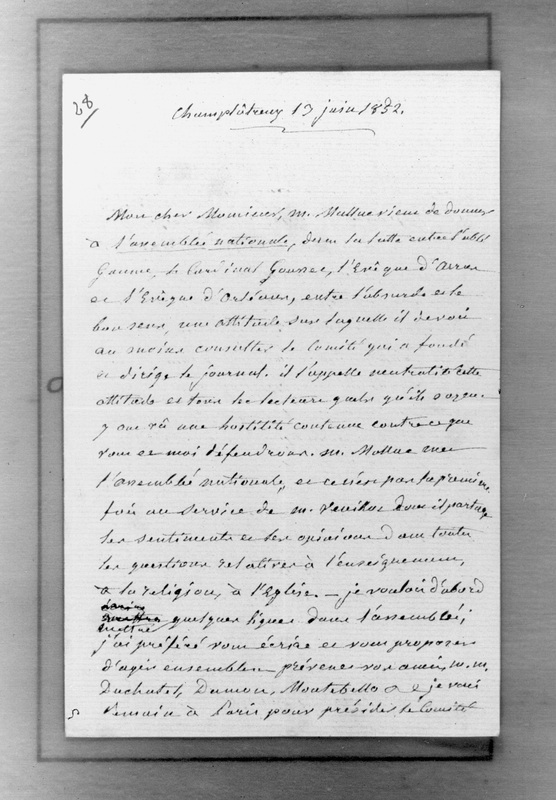 28
Champlâtreux 13 juin 1852.
Mon cher Monsieur, m. Mallac vient de donner
à l'assemblée nationale, dans la lutte entre l'abbé
Gaume, le Cardinal Gousset, l'Evêque d'Arras
et l'Evêque d'Orléans, entre l'absurde et le
bon sens, une attitude sur laquelle il devoit
au moins consulter le Comité qui a fondé
et dirige le journal. il l'appelle neutralité cette
attitude et tous les lecteurs quels qu'ils soyent
y ont vu une hostilité contenue contre ce que
vous et moi défendrons. m. Mallac met
l'assemblée nationale, et ce n'est pas la première
fois au service de m. Veuillot dont il partage
les sentiments et les opinions dans toutes
les questions relatives à l'enseignement,
à la religion, à l'Eglise. — je voulois d'abord
écrire
mettre
quelques lignes dans l'assemblée;
j'ai préféré vous écrire et vous proposer
d'agir ensemble. prévenez vos amis, m.m.
Duchatel, Dumon, Montebello & je vais
demain à Paris pour présider le Comité